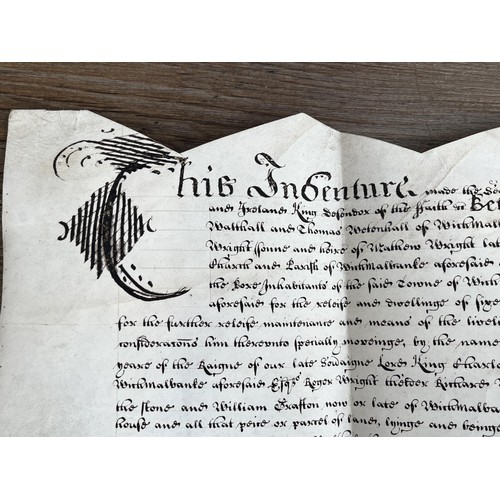 This Indenture made the
and Ireland King defendor of the faith &c Bet
Walthall and Thomas Wetenhall of Wichmal
Wright sonne and heire of Mathew Wright lat
Church and Parish of Wichmalbanke aforesaid
the Pore Inhabitants of the said Towne of Wich
aforesaid for the releife and dwellinge of sixe
for the further releife maintenance and means of the liveli
consideracons him thereunto specially moveinge, by the name
yeares of the Raigne of our late Sovaigne Lord King Charl
Wichmalbanke aforesaid Esqr Roger Wright thelder Richard
the stone and William Grafton now or late of Wichmalba
house and all that peice or parcel of land, lyinge and beinge